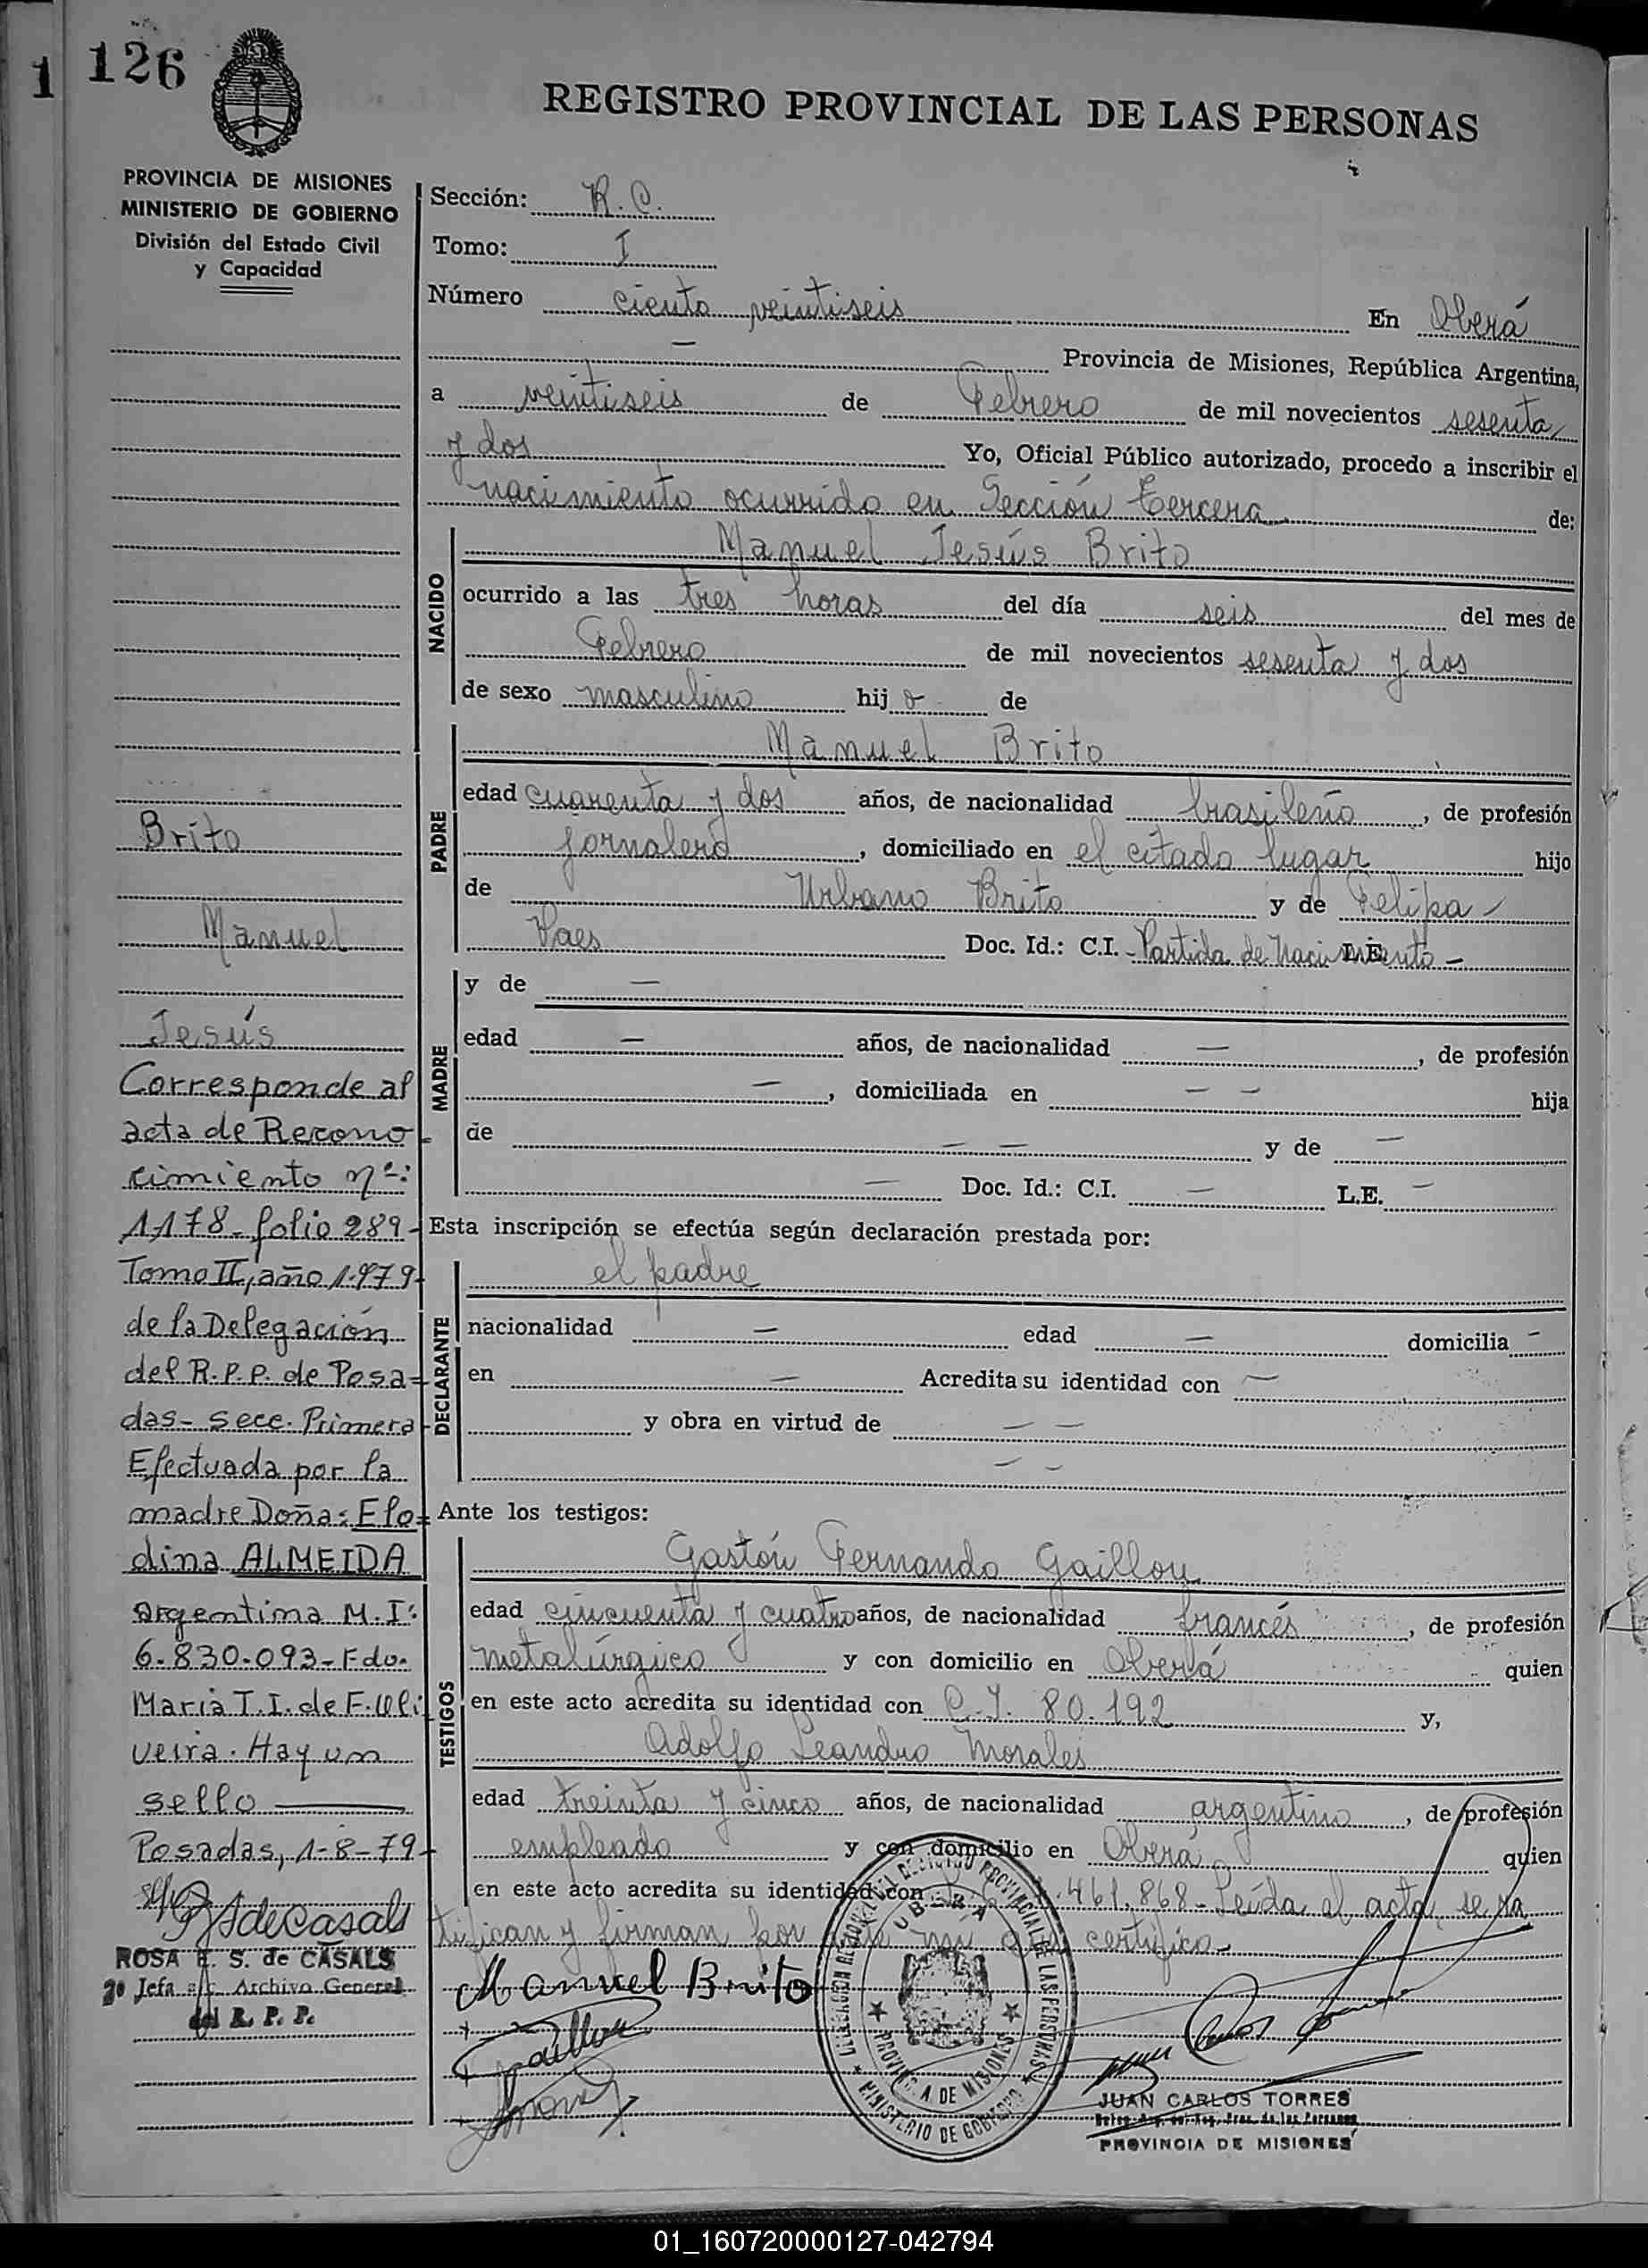 1 126
REGISTRO PROVINCIAL DE LAS PERSONAS
PROVINCIA DE MISIONES
MINISTERIO DE GOBIERNO
División del Estado Civil
y Capacidad
Sección: R. C.
Tomo: I
Número ciento veintiseis En Oberá
— Provincia de Misiones, República Argentina,
a veintiseis de Febrero de mil novecientos sesenta
y dos Yo, Oficial Público autorizado, procedo a inscribir el
nacimiento ocurrido en Sección tercera de:
NACIDO
Manuel Jesús Brito
ocurrido a las tres horas del día seis del mes de
Febrero de mil novecientos sesenta y dos
de sexo masculino hijo de
PADRE
Manuel Brito
edad cuarenta y dos años, de nacionalidad brasileño, de profesión
jornalero, domiciliado en el citado lugar hijo
de Urbano Brito y de Felipa -
Paes Doc. Id.: C.I. - Partida de Nacimiento - L.E.
MADRE
y de —
edad — años, de nacionalidad —, de profesión
—, domiciliada en — — hija
de — — y de —
— Doc. Id.: C.I. — L.E. —
Esta inscripción se efectúa según declaración prestada por:
DECLARANTE
el padre
nacionalidad — edad — domicilia -
en — Acredita su identidad con —
y obra en virtud de — —
— —
Ante los testigos:
TESTIGOS
Gastón Fernando Gaillou
edad cincuenta y cuatro años, de nacionalidad francés, de profesión
metalúrgico y con domicilio en Oberá quien
en este acto acredita su identidad con C. I. 80.192 y,
Adolfo Leandro Morales
edad treinta y cinco años, de nacionalidad argentino, de profesión
empleado y con domicilio en Oberá quien
en este acto acredita su identidad con .461.868 - Leída el acta, se ra
tifican y firman por ante mí que certifico -
Manuel Brito
JUAN CARLOS TORRES
PROVINCIA DE MISIONES
PROVINCIAL DE LAS PERSONAS
OBERA
PROVINCIA DE MISIONES
MINISTERIO DE GOBIERNO
Brito
Manuel
Jesús
Corresponde al
acta de Recono-
cimiento nº:
1178- folio 289-
Tomo II, año 1.979-
de la Delegación
del R.P.P. de Posa=
das- secc. Primera-
Efectuada por la
madre Doña: Elo=
dina ALMEIDA
argentina M.I:
6.830.093- Fdo.
Maria T.I. de F. Oli
veira. Hay un
sello —
Posadas, 1-8-79-
ROSA E. S. de CASALS
2º Jefa a/c. Archivo General
del R. P. P.
01_160720000127-042794